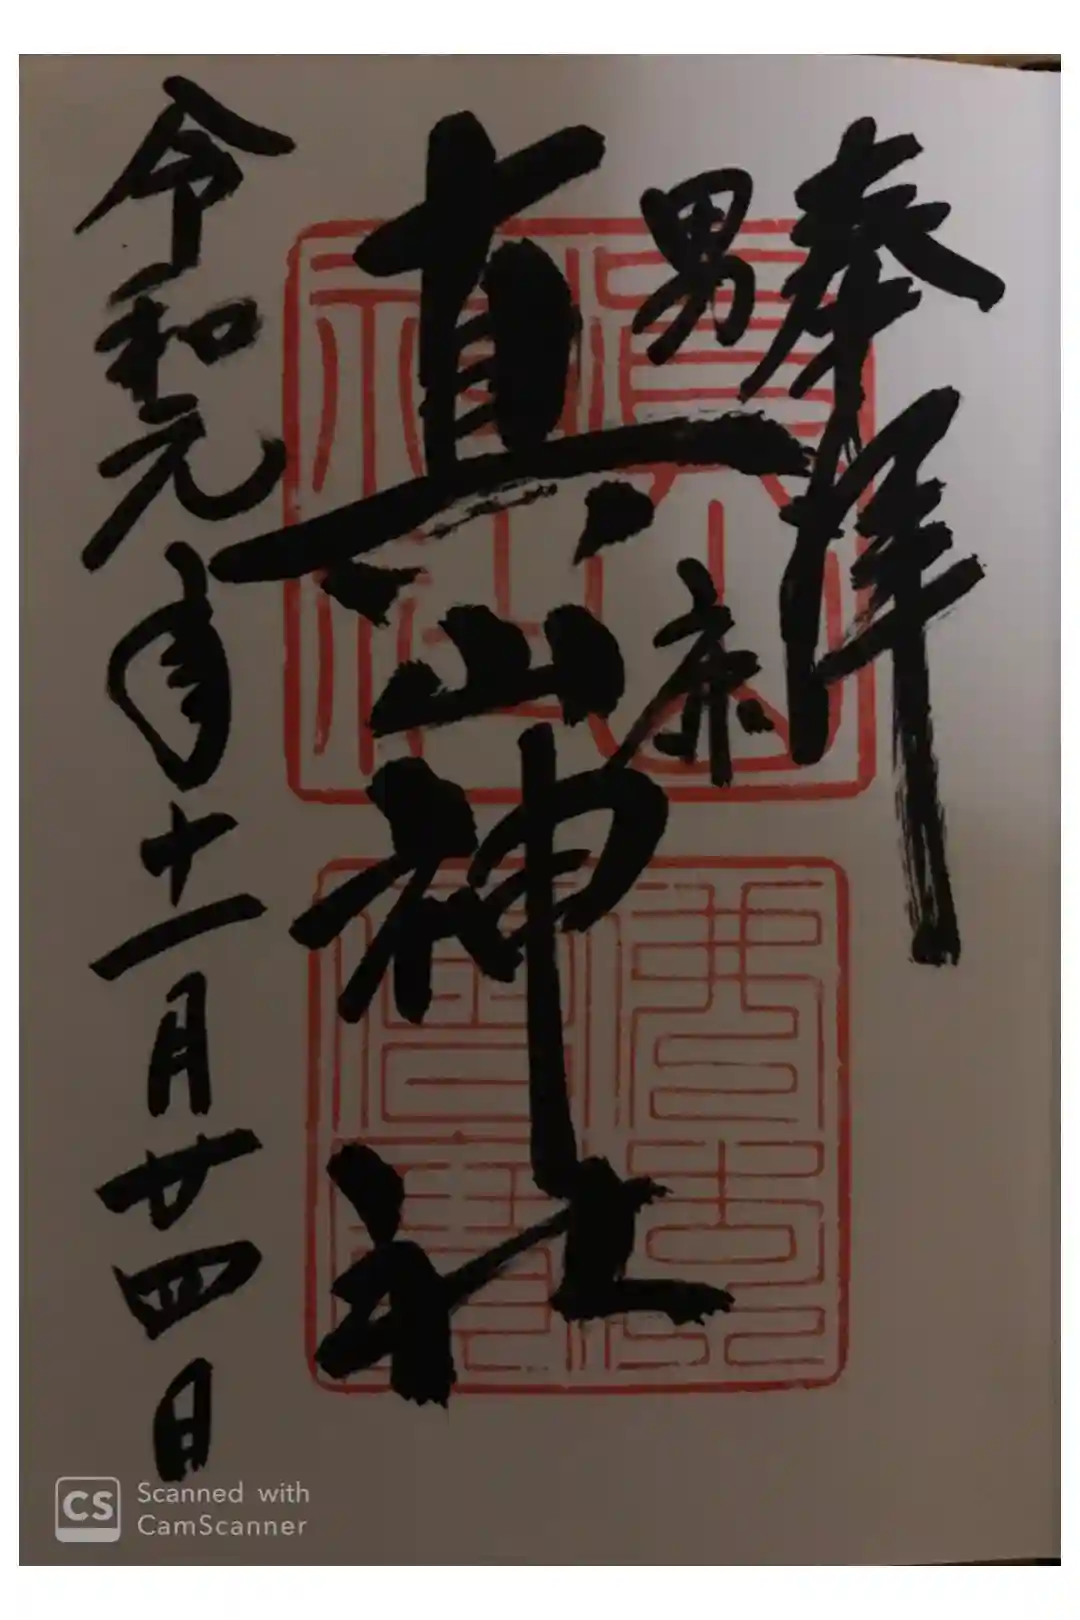 奉拝
男鹿
真山神社
令和元年十一月廿四日
真山
神社
CS Scanned with
CamScanner